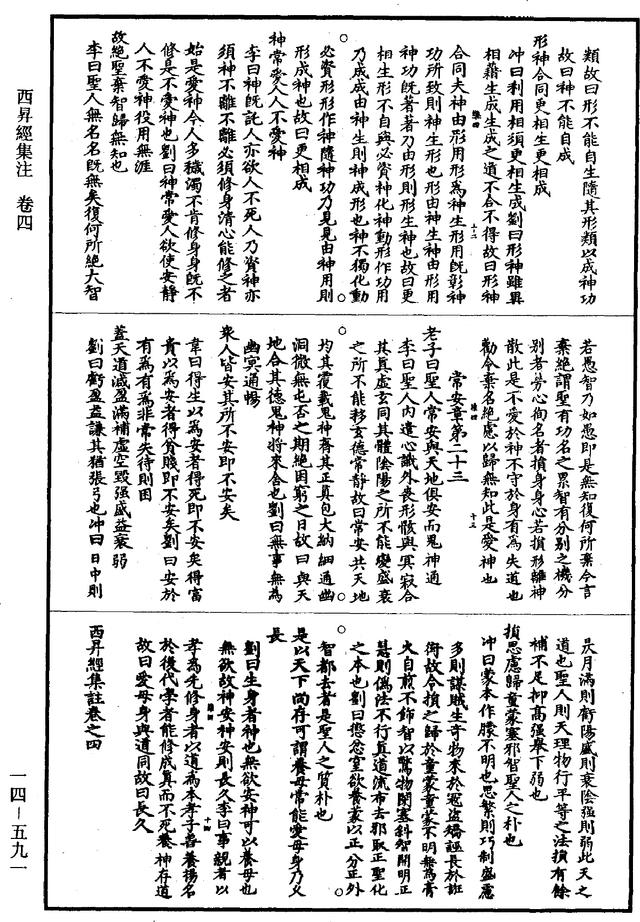 西昇經集注 卷四
類故曰形不能自生隨其形類以成神功
故曰神不能自成
形神合同更相生更相成
冲曰利用相須更相生成劉曰形神雖異
相藉生成生成之道不合不得故曰形神
合同夫神由形用形為神生形用既彰神
功所致則神生形也形由神生神由形用
神功既著著乃由形則形生神也故曰更
相生形不自與必資神化神動形作功用
乃成成由神生則神成形也神不獨化動
必資形形作神隨神功乃見見由神用則
形成神也故曰更相成
神常愛人人不愛神
李曰神既託人亦欲人不死人乃資神亦
須神不離不離必須修身清心能修之者
始是愛神今人多穢濁不肯修身身既不
修是不愛神也劉曰神常愛人欲使安靜
人不愛神役用無涯
故絕聖棄智歸無知也
李曰聖人無名名既無矣復何所絕大智
若愚智乃如愚即是無知復何所棄今言
棄絕謂聖有功名之累智有分別之機分
別者勞心徇名者損身身心若損形離神
散此是不愛於神不守於身有為失道也
勸令棄名絕慮以歸無知此是愛神也
常安章第二十三
老子曰聖人常安與天地俱安而鬼神通
李曰聖人內遺心識外喪形骸與冥寂合
其真虛玄同其體陰陽之所不能變盛衰
之所不能移玄德常靜故曰常安共天地
均其覆載鬼神齊其正真包大納細通幽
洞微無屯否之期絕困窮之日故曰與天
地合其德鬼神將來舍也劉曰無事無為
幽冥通暢
衆人皆安其所不安即不安矣
韋曰得生以為安者得死即不安矣得富
貴以為安者得貧賤即不安矣劉曰安於
有為有為非常失待則困
蓋天道減盈滿補虛空毀强盛益衰弱
劉曰虧盈益謙其猶張弓也冲曰日中則
昃月滿則虧陽盛則衰陰强則弱此天之
道也聖人則天理物行平等之法損有餘
補不足抑高强舉下弱也
損思慮歸童蒙塞邪智聖人之朴也
冲曰蒙本作朦不明也思繁則巧制盛慮
多則謀賊生奇物來於寇盗矯誣長於誑
衒故令損之歸於童蒙童蒙不明無為膏
火自煎不飾智以驚物閉塞斜智開明正
慧則偽法不行真道流布去邪取正聖化
之本也劉曰懲忿窒欲養蒙以正分正外
智都去者是聖人之質朴也
是以天下尚存可謂養母常能愛母身乃久
長
劉曰生身者神也無欲安神可以養母也
無欲故神安神安則長久李曰事親者以
孝為先修身者以道為本孝子善養揚名
於後代學者能修成真而不死養神存道
故曰愛母身與道同故曰長久
西昇經集註卷之四
一四－五九一